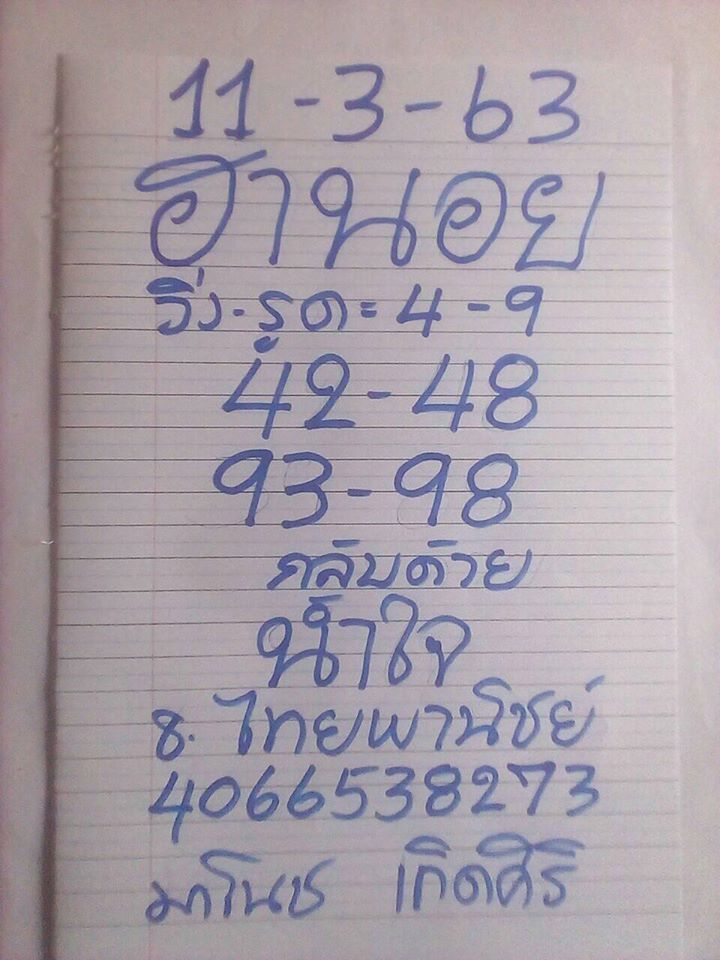 11-3-63
ฮานอย
วิ่ง-รูด=4-9
42-48
93-98
กลับด้วย
น้ำใจ
ธ. ไทยพานิชย์
4066538273
มาโนช เกิดศิริ